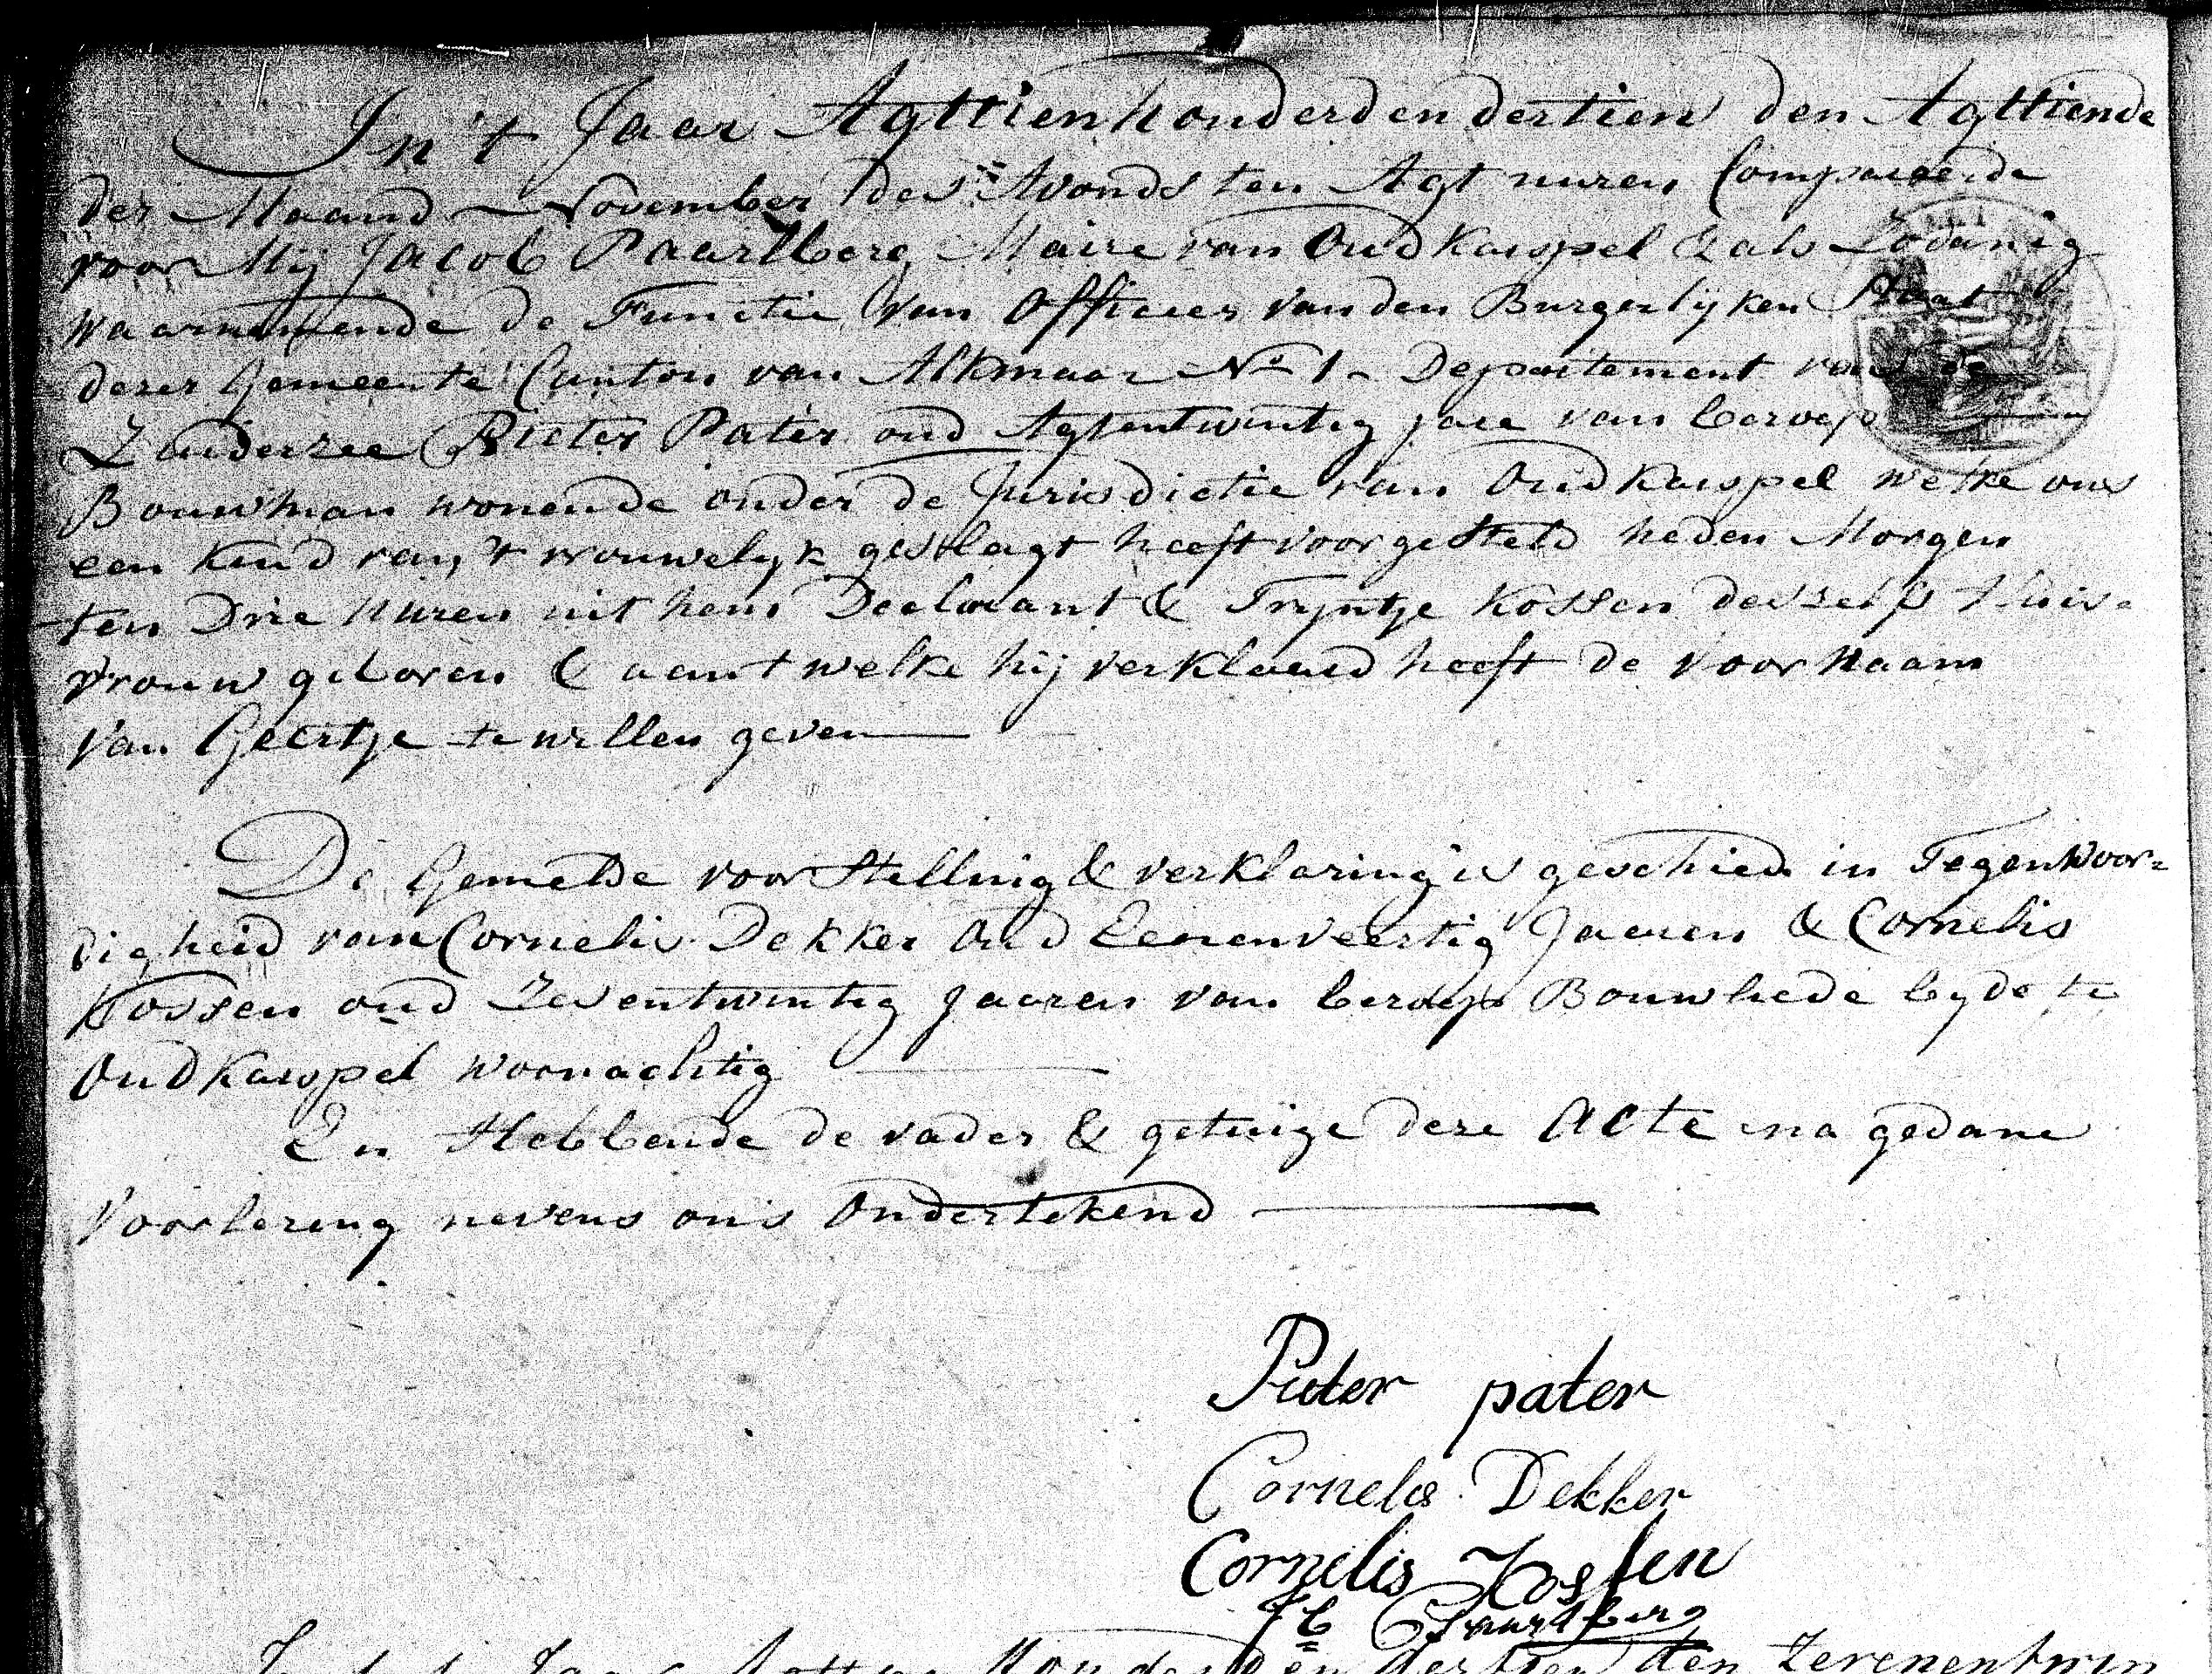 In't Jaar Agttienhonderd en dertien den Agttiende
der Maand November des Avonds ten Agt uuren Compareerde
voor Mij Jacob Paarlberg Maire van Oudkarspel & als Zodanig
waarnemende de Functie van Officier van den Burgerlijken Staat
dezer Gemeente Canton van Alkmaar No 1 - Departement van de
Zuiderzee Pieter Pater oud Agtentwintig jare van beroep
Bouwman wonende onder de Jurisdictie van Oudkarspel welke ons
een kind van 't vrouwelijk geslagt heeft voorgesteld heden Morgen
ten Drie Uuren uit hem Declarant & Trijntje Kossen deszelfs Huis-
vrouw geboren & aan 't welke hij verklaard heeft de voornaam
van Geertje te willen geven
De Gemelde voorstelling & verklaring is geschied in Tegenwoor=
digheid van Cornelis Dekker Oud Eenenveertig Jaaren & Cornelis
Kossen oud Zeventwintig Jaaren van beroep Bouwliede byde te
Oudkarspel woonachtig
En Hebbende de vader & getuige deze Acte na gedane
Voorlezing nevens ons Ondertekend
Pieter pater
Cornelis Dekker
Cornelis Kossen
Jb Paarlberg
In het Jaar Agttien Honderd en dertien den Zevenentwin